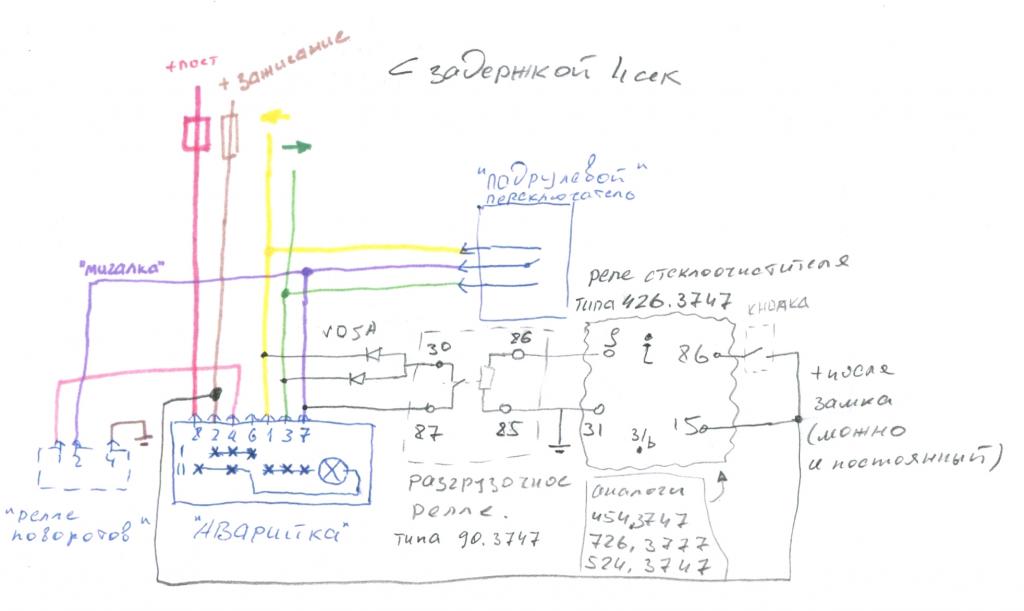 +пост
+ зажигание
с задержкой 4сек
"подрулевой"
переключатель
"мигалка"
реле стеклоочистителя
типа 426.3747
кнопка
VD5A
30
86
S
i
86
+после
замка
(можно
и постоянный)
87
85
31
3/b
15
8 2 4 6 1 3 7
I
II
1 2 4
"релле
поворотов"
"Аварийка"
разгрузочное
релле.
типа 90.3747
аналоги
454.3747
726.3777
524.3747